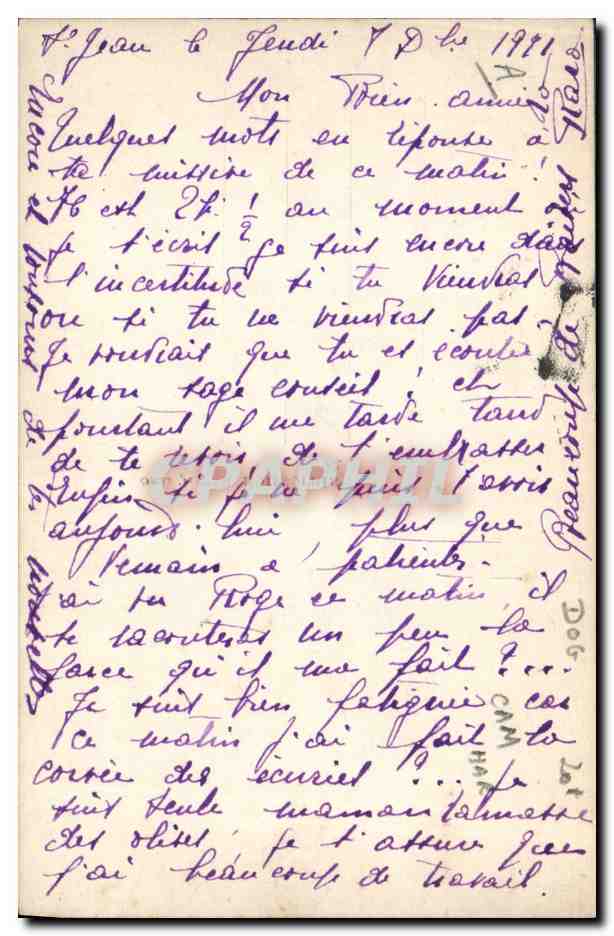 St Jean le Jeudi 7 Dbre 19
Mon Bien aimé
Quelques mots en réponse à
ta missive de ce matin !
Il est 2h. 1/2 au moment
je t'écris je suis encore dans
l'incertitude si tu viendras
ou si tu ne viendras pas.
Je voudrais que tu es écouté
mon sage conseil ! et
pourtant il me tarde tant
de te revoir, de t'embrasser
Enfin si je ne puis t'avoir
aujourd'hui, plus que
demain à patienter.
J'ai vu Roge ce matin, il
te racontera un peu la
farce qu'il me fait ?...
Je suis bien fatiguée car
ce matin j'ai fait la
corvée des écuries ?... je
suis seule maman ramasse
des olives, je t'assure que
j'ai beaucoup de travail.
Encore et toujours de tes nouvelles
Beaucoup de baisers
A
DOG
CAM
MAR
CPARAMA